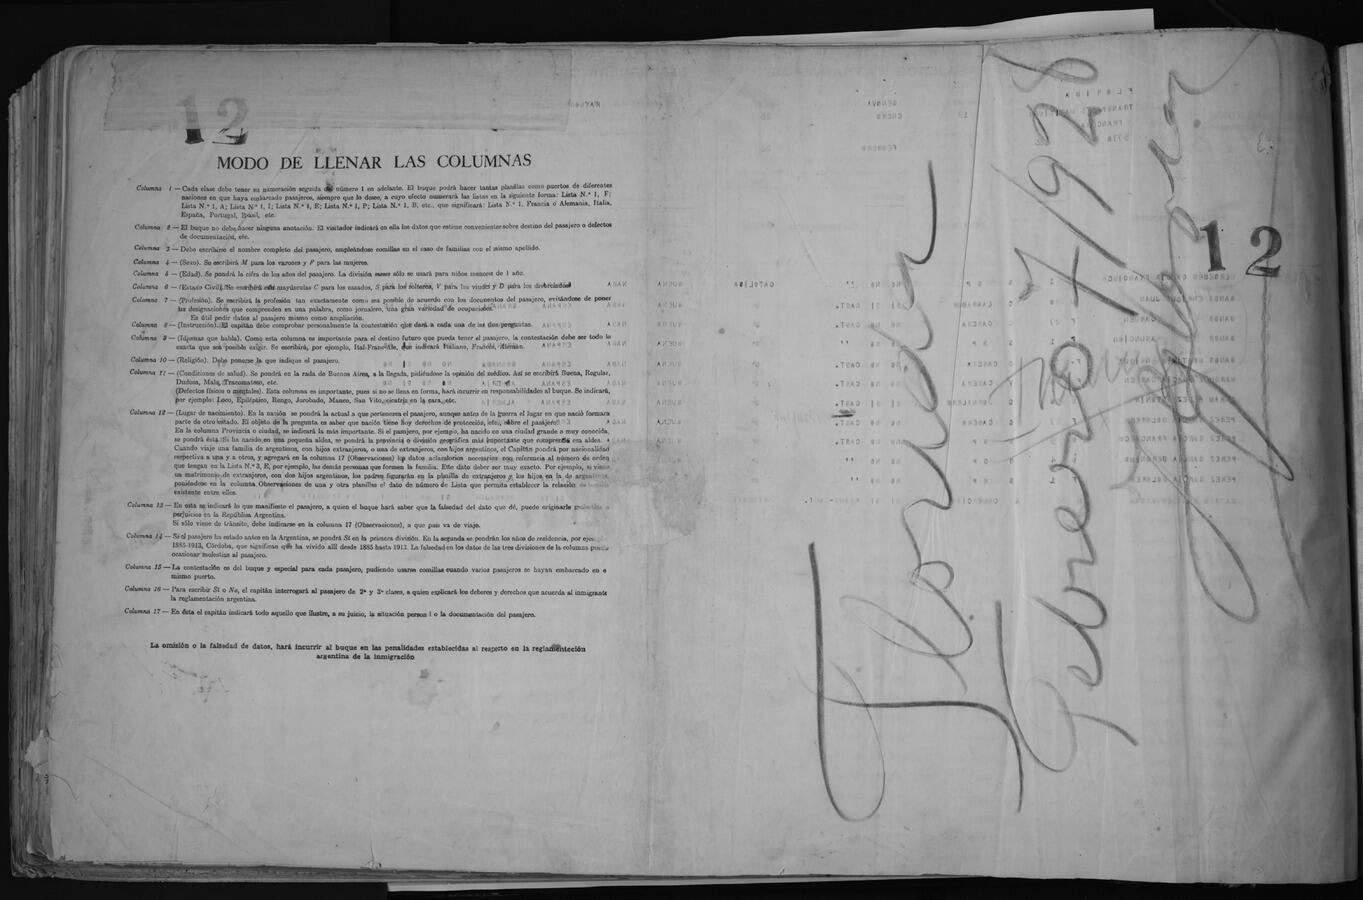 12
MODO DE LLENAR LAS COLUMNAS
Columna 1 — Cada clase debe tener su numeración seguida del número 1 en adelante. El buque podrá hacer tantas planillas como puertos de diferentes
naciones en que haya embarcado pasajeros, siempre que lo desee, a cuyo efecto numerará las listas en la siguiente forma: Lista N.º 1, F;
Lista N.º 1, A; Lista N.º 1, I; Lista N.º 1, E; Lista N.º 1, P; Lista N.º 1, B, etc., que significará: Lista N.º 1, Francia o Alemania, Italia,
España, Portugal, Brasil, etc.
Columna 2 — El buque no debe hacer ninguna anotación. El visitador indicará en ella los datos que estime conveniente sobre destino del pasajero o defectos
de documentación, etc.
Columna 3 — Debe escribirse el nombre completo del pasajero, empleándose comillas en el caso de familias con el mismo apellido.
Columna 4 — (Sexo). Se escribirá M para los varones y F para las mujeres.
Columna 5 — (Edad). Se pondrá la cifra de los años del pasajero. La división meses sólo se usará para niños menores de 1 año.
Columna 6 — (Estado Civil). Se escribirá con mayúsculas C para los casados, S para los solteros, V para los viudos y D para los divorciados
Columna 7 — (Profesión). Se escribirá la profesión tan exactamente como sea posible de acuerdo con los documentos del pasajero, evitándose de poner
las designaciones que comprenden en una palabra, como jornalero, una gran variedad de ocupaciones.
Es útil pedir datos al pasajero mismo como ampliación.
Columna 8 — (Instrucción). El capitán debe comprobar personalmente la contestación que dará a cada una de las dos preguntas.
Columna 9 — (Idiomas que habla). Como esta columna es importante para el destino futuro que pueda tener el pasajero, la contestación debe ser todo lo
exacta que sea posible exigir. Se escribirá, por ejemplo, Ital-Franc-Ale, que indicará Italiano, Francés, Alemán.
Columna 10 — (Religión). Debe ponerse la que indique el pasajero.
Columna 11 — (Condiciones de salud). Se pondrá en la rada de Buenos Aires, a la llegada, pidiéndose la opinión del médico. Así se escribirá Buena, Regular,
Dudosa, Mala, Tracomatoso, etc.
(Defectos físicos o mentales). Esta columna es importante, pues si no se llena en forma, hará incurrir en responsabilidades al buque. Se indicará,
por ejemplo: Loco, Epiléptico, Rengo, Jorobado, Manco, San Vito, cicatriz en la cara, etc.
Columna 12 — (Lugar de nacimiento). En la nación se pondrá la actual a que pertenezca el pasajero, aunque antes de la guerra el lugar en que nació formara
parte de otro estado. El objeto de la pregunta es saber que nación tiene hoy derechos de protección, etc., sobre el pasajero.
En la columna Provincia o ciudad, se indicará la más importante. Si el pasajero, por ejemplo, ha nacido en una ciudad grande o muy conocida,
se pondrá ésta. Si ha nacido en una pequeña aldea, se pondrá la provincia o división geográfica más importante que comprenda esa aldea.
Cuando viaje una familia de argentinos, con hijos extranjeros, o una de extranjeros, con hijos argentinos, el Capitán pondrá por nacionalidad
respectiva a una y a otros, y agregará en la columna 17 (Observaciones) los datos aclaratorios necesarios con referencia al número de orden
que tengan en la Lista N.º 3, E, por ejemplo, las demás personas que formen la familia. Este dato deber ser muy exacto. Por ejemplo, si viene
un matrimonio de extranjeros, con dos hijos argentinos, los padres figurarán en la planilla de extranjeros y los hijos en la de argentinos,
poniéndose en la columna Observaciones de una y otra planillas el dato de número de Lista que permita establecer la relación
existente entre ellos.
Columna 13 — En esta se indicará lo que manifieste el pasajero, a quien el buque hará saber que la falsedad del dato que dé, puede originarle
perjuicios en la República Argentina.
Si sólo viene de tránsito, debe indicarse en la columna 17 (Observaciones), a que país va de viaje.
Columna 14 — Si el pasajero ha estado antes en la Argentina, se pondrá Sí en la primera división. En la segunda se pondrán los años de residencia, por
1885-1913, Córdoba, que significan que ha vivido allí desde 1885 hasta 1913. La falsedad en los datos de las tres divisiones de la columna
ocasionar molestias al pasajero.
Columna 15 — La contestación es del buque y especial para cada pasajero, pudiendo usarse comillas cuando varios pasajeros se hayan embarcado en e
mismo puerto.
Columna 16 — Para escribir Sí o No, el capitán interrogará al pasajero de 2ª y 3ª clases, a quien explicará los deberes y derechos que acuerda al inmigrante
la reglamentación argentina.
Columna 17 — En ésta el capitán indicará todo aquello que ilustre, a su juicio, la situación person l o la documentación del pasajero.
La omisión o la falsedad de datos, hará incurrir al buque en las penalidades establecidas al respecto en la reglamenteción
argentina de la inmigración
Florida
Febrero 7/928
12